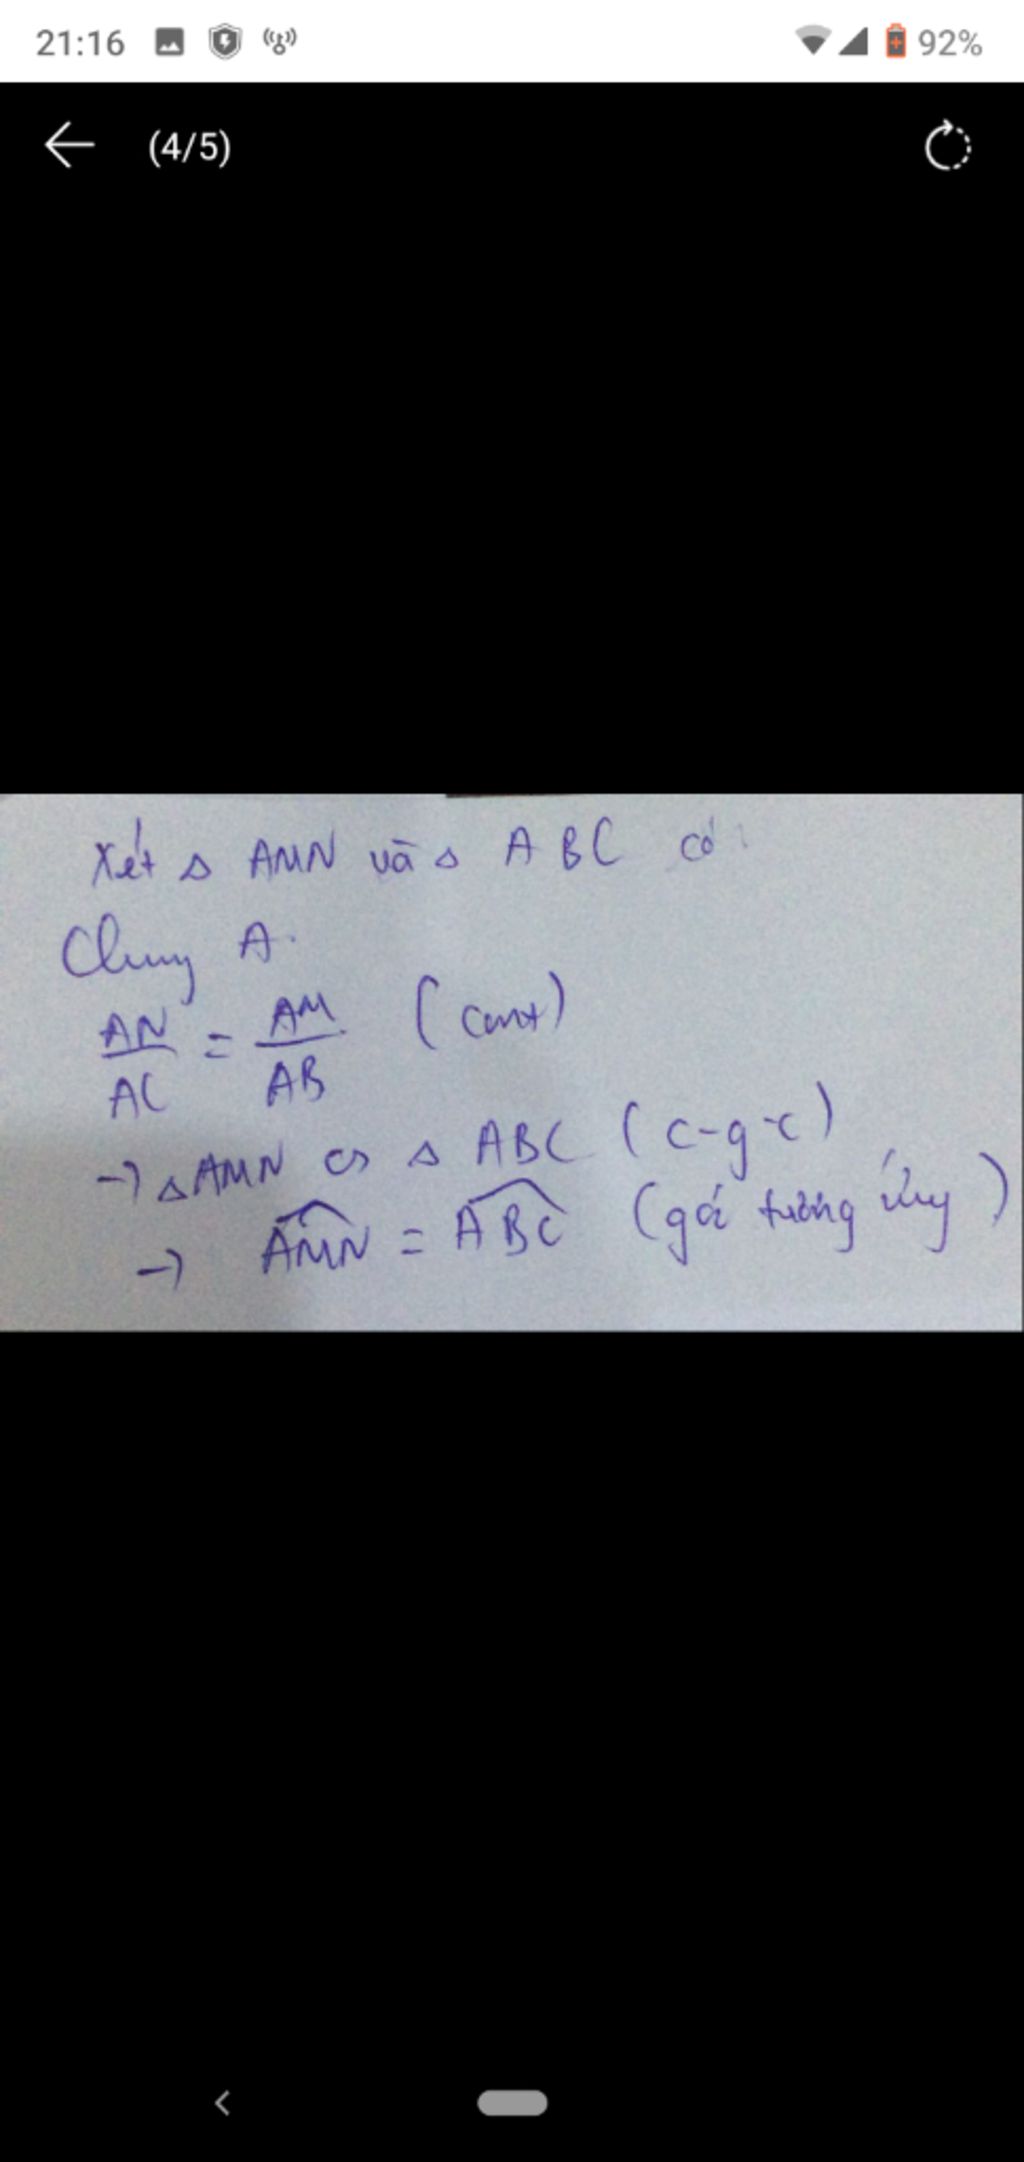 21:16 92%
(4/5)
Xét Δ AMN và Δ ABC có:
Chung A.
AN/AC = AM/AB (cmt)
→ Δ AMN ∽ Δ ABC (c-g-c)
→ \widehat{AMN} = \widehat{ABC} (góc tương ứng)